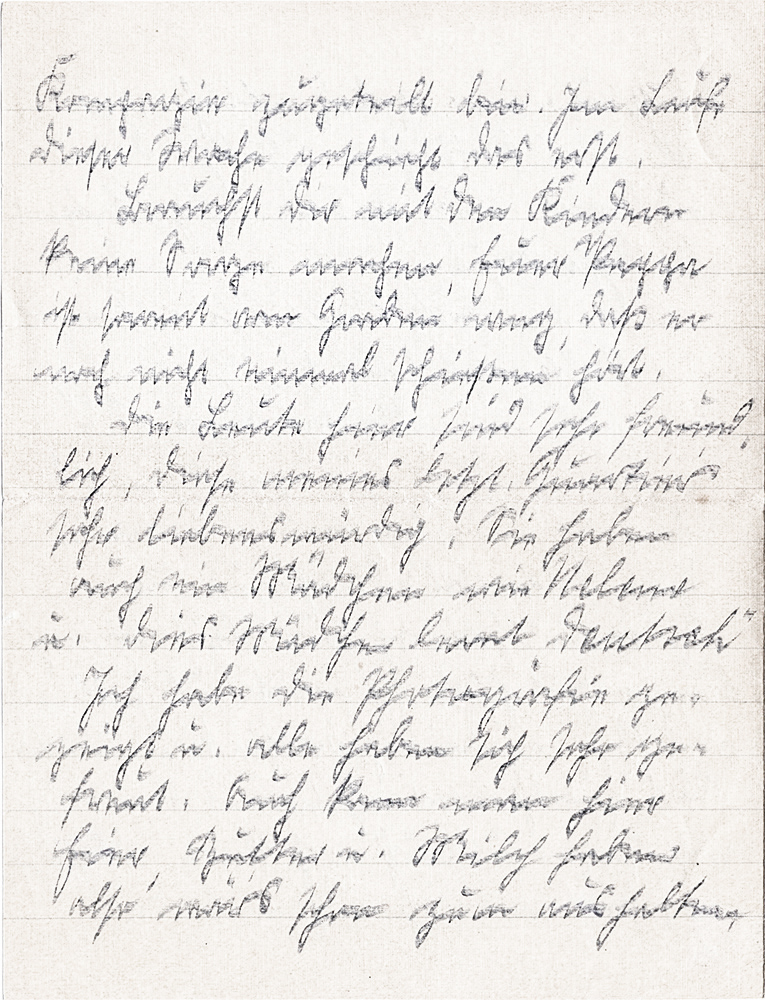 Kompanie zugeteilt bin. Im Laufe
dieser Woche geschieht das erst.
Brauchst dir mit den Kindern
keine Sorge machen, Euer Pappa
ist soweit vom weg, daß er
noch nicht einmal schießen hört.
Die Leute hier sind sehr freund,
lich, diese meines letzt. Quartiers
sehr liebenswürdig. Sie haben
auch ein Mädchen wie
u. dies Mädchen lernt deutsch"
Ich habe die Photographie ge-
zeigt u. alle haben sich sehr ge-
freut. Auch kann man hier
Eier, Butter u. Milch haben
also wär's schon zum aushalten,